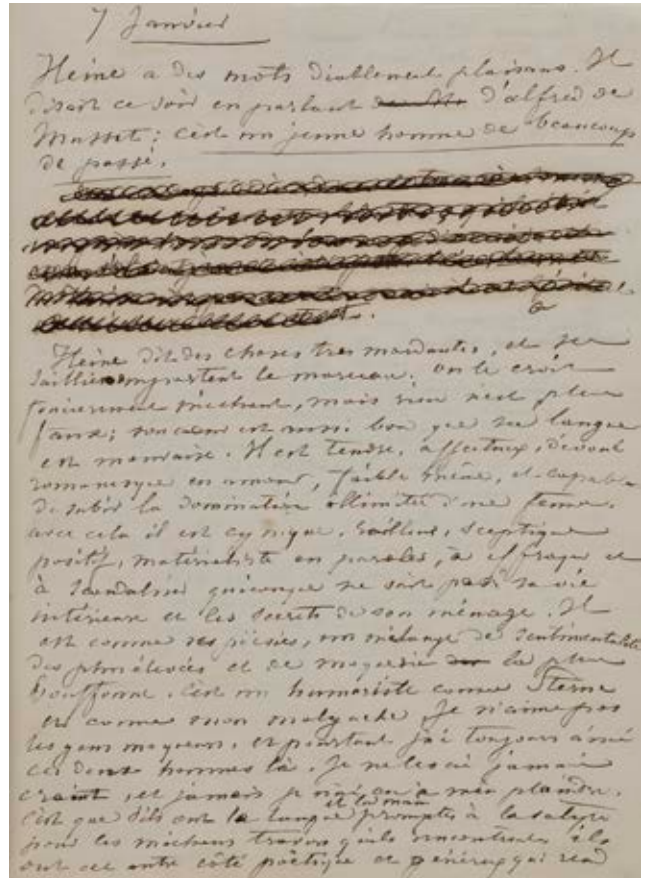 7 Janvier
Heine a des mots diablement plaisans. Il
disait ce soir en parlant d'alfred de
Musset : C'est un jeune homme de beaucoup
de passé.
Heine dit des choses tres mordantes, et ses
saillies emportent le morceau. on le croit
foncierement mechant, mais rien n'est plus
faux ; son cœur est aussi bon que sa langue
est mauvaise. Il est tendre, affectueux, dévoué
romanesque en amour, faible même, et capable
de subir la domination illimitée d'une femme.
avec cela il est cynique, railleur, sceptique
positif, matérialiste en paroles, à effrayer et
à scandaliser quiconque ne sait pas sa vie
intérieure et les secrets de son ménage. Il
est comme ses poésies, un mélange de sentimentalité
des plus élevées et de moquerie la plus
bouffonne. C'est un humoriste comme Sterne
et comme mon malgache. Je n'aime pas
les gens moqueurs, et pourtant j'ai toujours aimé
ces deux hommes là. Je ne les ai jamais
craint, et jamais je n'ai eu à m'en plaindre.
C'est que s'ils ont la langue et la main promptes à la satyre
pour les méchans travers qu'ils rencontrent ils
ont cet autre côté poëtique et généreux qui rend